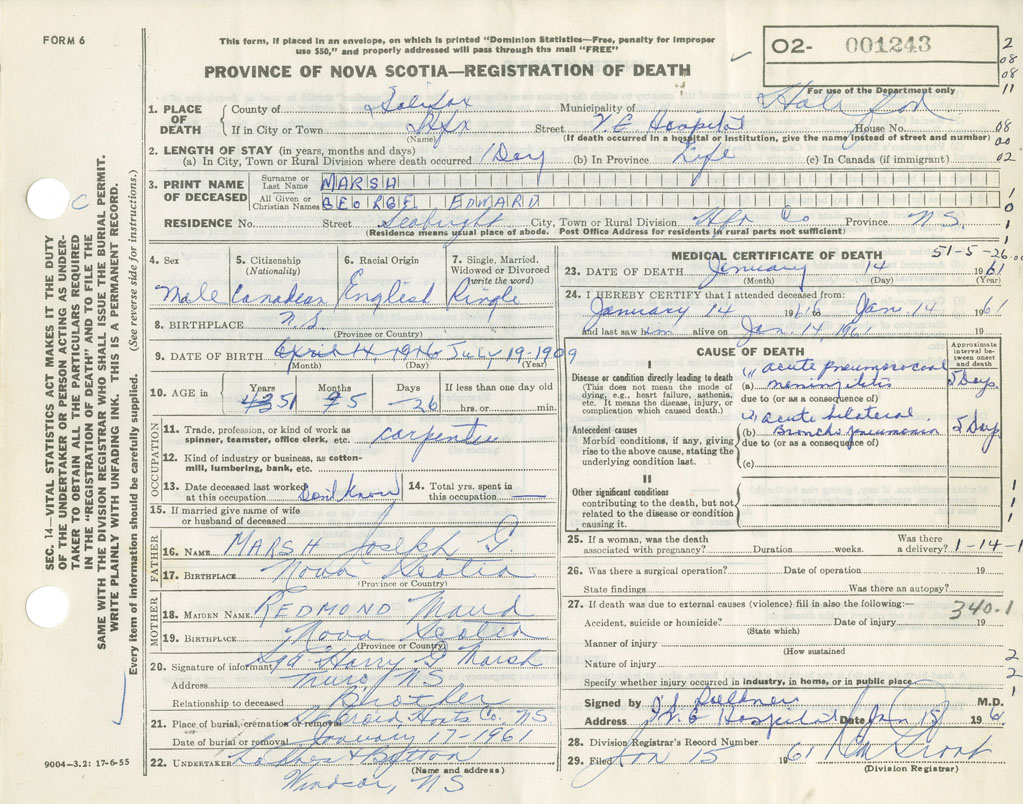 FORM 6
This form, if placed in an envelope, on which is printed "Dominion Statistics—Free, penalty for improper
use $50," and properly addressed will pass through the mail "FREE"
PROVINCE OF NOVA SCOTIA—REGISTRATION OF DEATH
O2- 001243
For use of the Department only
2
08
08
11
08
00
02
1
0
1
1
1. PLACE OF DEATH
County of Halifax Municipality of
If in City or Town Hfx Street V. G Hospital House No.
(Name) (If death occurred in a hospital or institution, give the name instead of street and number)
2. LENGTH OF STAY (in years, months and days)
(a) In City, Town or Rural Division where death occurred 1 Day (b) In Province Life (c) In Canada (if immigrant)
3. PRINT NAME OF DECEASED
Surname or Last Name MARSH
All Given or Christian Names GEORGE EDWARD
RESIDENCE No. Street Seabright City, Town or Rural Division Hfx Co Province N.S.
(Residence means usual place of abode. Post Office Address for residents in rural parts not sufficient)
4. Sex 5. Citizenship (Nationality) 6. Racial Origin 7. Single, Married, Widowed or Divorced (write the word)
Male Canadian English Single
8. BIRTHPLACE N.S.
(Province or Country)
9. DATE OF BIRTH April 14, 1916 July 19-1909
(Month) (Day) (Year)
10. AGE in Years Months Days If less than one day old
51 5 26 hrs. or min.
OCCUPATION
11. Trade, profession, or kind of work as
spinner, teamster, office clerk, etc. carpenter
12. Kind of industry or business, as cotton-
mill, lumbering, bank, etc.
13. Date deceased last worked at this occupation Dont Know 14. Total yrs. spent in this occupation —
15. If married give name of wife
or husband of deceased
FATHER
16. NAME MARSH Joseph G
17. BIRTHPLACE Nova Scotia
(Province or Country)
MOTHER
18. MAIDEN NAME REDMOND Maud
19. BIRTHPLACE Nova Scotia
(Province or Country)
20. Signature of informant Sgd Harry G Marsh
Address Truro NS
Relationship to deceased Brother
21. Place of burial, cremation or removal Hants Co. NS
Date of burial or removal January 17-1961
22. UNDERTAKER
(Name and address)
Windsor, NS
9004—3.2: 17-6-55
MEDICAL CERTIFICATE OF DEATH 51-5-26
23. DATE OF DEATH January 14 1961
(Month) (Day) (Year)
24. I HEREBY CERTIFY that I attended deceased from:
January 14 1961 to Jan. 14 1961
and last saw him alive on Jan. 14, 1961 19
CAUSE OF DEATH
Approximate interval between onset and death
I
Disease or condition directly leading to death
(This does not mean the mode of
dying, e.g., heart failure, asthenia,
etc. It means the disease, injury, or
complication which caused death.)
(1) acute pneumococcal
(a) meningitis 5 Days
due to (or as a consequence of)
Antecedent causes
Morbid conditions, if any, giving
rise to the above cause, stating the
underlying condition last.
(2) acute bilateral
(b) Broncho pneumonia 5 Days
due to (or as a consequence of)
(c)
II
Other significant conditions
contributing to the death, but not
related to the disease or condition
causing it.
1
1
1
25. If a woman, was the death
associated with pregnancy? Duration weeks. Was there a delivery? 1-14-1
26. Was there a surgical operation? Date of operation 19
State findings Was there an autopsy?
27. If death was due to external causes (violence) fill in also the following:— 340.1
Accident, suicide or homicide? Date of injury 19
(State which)
Manner of injury
(How sustained
Nature of injury
Specify whether injury occurred in industry, in home, or in public place
2
2
1
Signed by M.D.
Address V. G Hospital Date Jan 15 1961
28. Division Registrar's Record Number
29. Filed Jan 15 1961
(Division Registrar)
SEC. 14—VITAL STATISTICS ACT MAKES IT THE DUTY
OF THE UNDERTAKER OR PERSON ACTING AS UNDER-
TAKER TO OBTAIN ALL THE PARTICULARS REQUIRED
IN THE "REGISTRATION OF DEATH" AND TO FILE THE
SAME WITH THE DIVISION REGISTRAR WHO SHALL ISSUE THE BURIAL PERMIT.
WRITE PLAINLY WITH UNFADING INK. THIS IS A PERMANENT RECORD.
Every item of information should be carefully supplied. (See reverse side for instructions.)
C